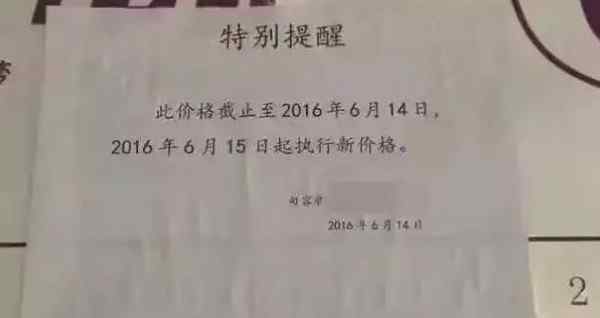 特别提醒
此价格截止至2016年6月14日，
2016年6月15日起执行新价格。
句容市
2016年6月14日
2